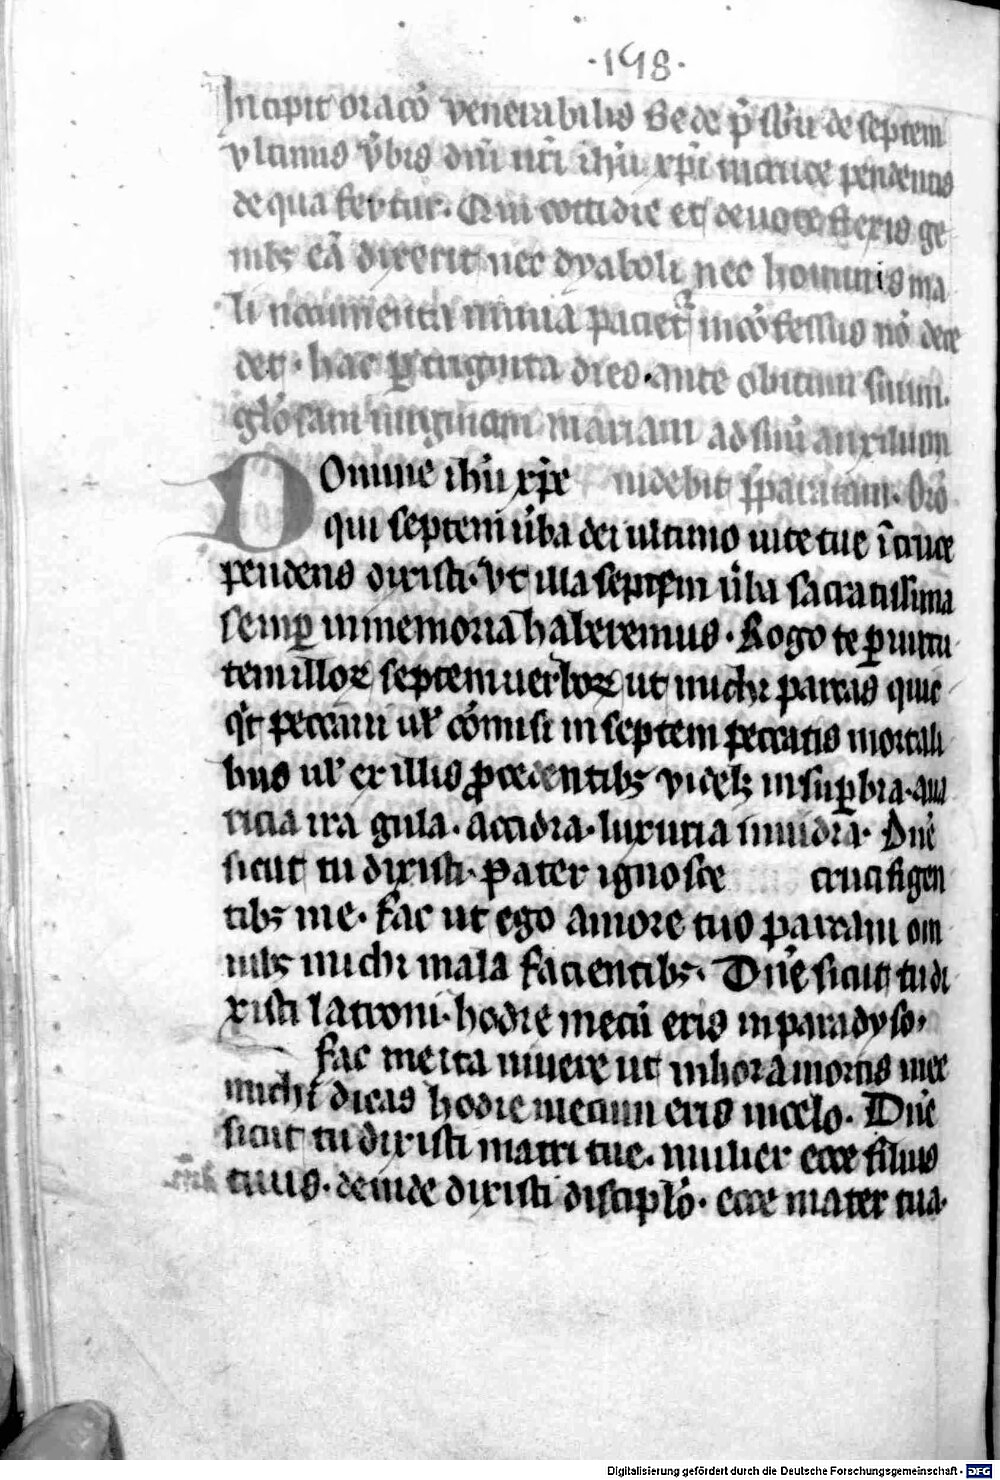 ·198·
Incipit oracō venerabilis Bede p̄sbr̄i de septem
vltimis v̄bis dn̄i nr̄i ihū xp̄i in cruce pendentis
de qua fertur. Qui cottidie et deuote flexis ge
nibꝫ eā dixerit nec dyaboli nec hominis ma
li nocumentū pacietr̄ incōfessus nō dece
det. hac ꝑ triginta dies. ante obitum suum.
glōsam uirginem mariam ad suū auxilium
Domine ihū xp̄e uidebit p̄paratam. Orō
qui septem ūba dei ultimo uite tue ī cruce
pendens dixisti. vt illa septem ūba sacratissima
semꝑ in memoria haberemus. Rogo te ꝑ uirtu
tem illoꝝ septem uerboꝝ ut michi parcas quic
qͥt peccaui ul' cōmisi in septem peccatis mortali
bus ul' ex illis ꝓcedentibꝫ videlꝫ in suꝑbia. aua
ricia ira gula. accidia. luxuria inuidia. Dn̄e
sicut tu dixisti. pater ignosce crucifigen
tibꝫ me. fac ut ego amore tuo parcam om
nibꝫ michi mala facientibꝫ. Dn̄e sicut tu di
xisti latroni. hodie mecū eris in paradyso,
fac me ita uiuere ut in hora mortis mee
michi dicas hodie mecum eris in celo. Dn̄e
sicut tu dixisti matri tue. mulier ecce filius
tuus. deinde dixisti discipl̄o. ecce mater tua.
Digitalisierung gefördert durch die Deutsche Forschungsgemeinschaft - DFG